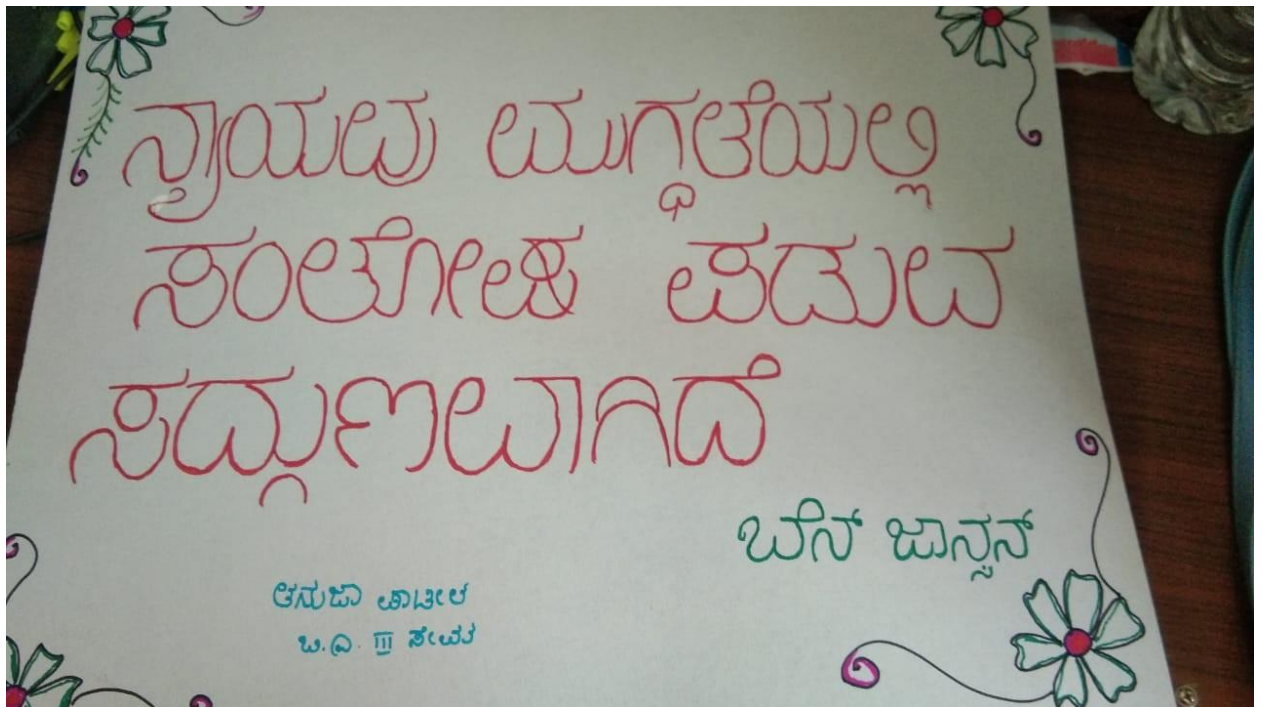 ನ್ಯಾಯವು ಮುಗ್ಧತೆಯಲ್ಲಿ
ಸಂತೋಷ ಪಡುವ
ಸದ್ಗುಣವಾಗಿದೆ
ಬೆನ್ ಜಾನ್ಸನ್
ಅನುಜಾ ಪಾಟೀಲ
ಬಿ.ಎ. III ಸೇಮಾ